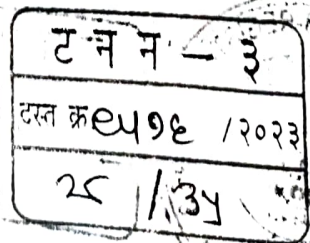 ट न न - ३
दस्त क्र ९५१६ /२०२३
२८ / ३५